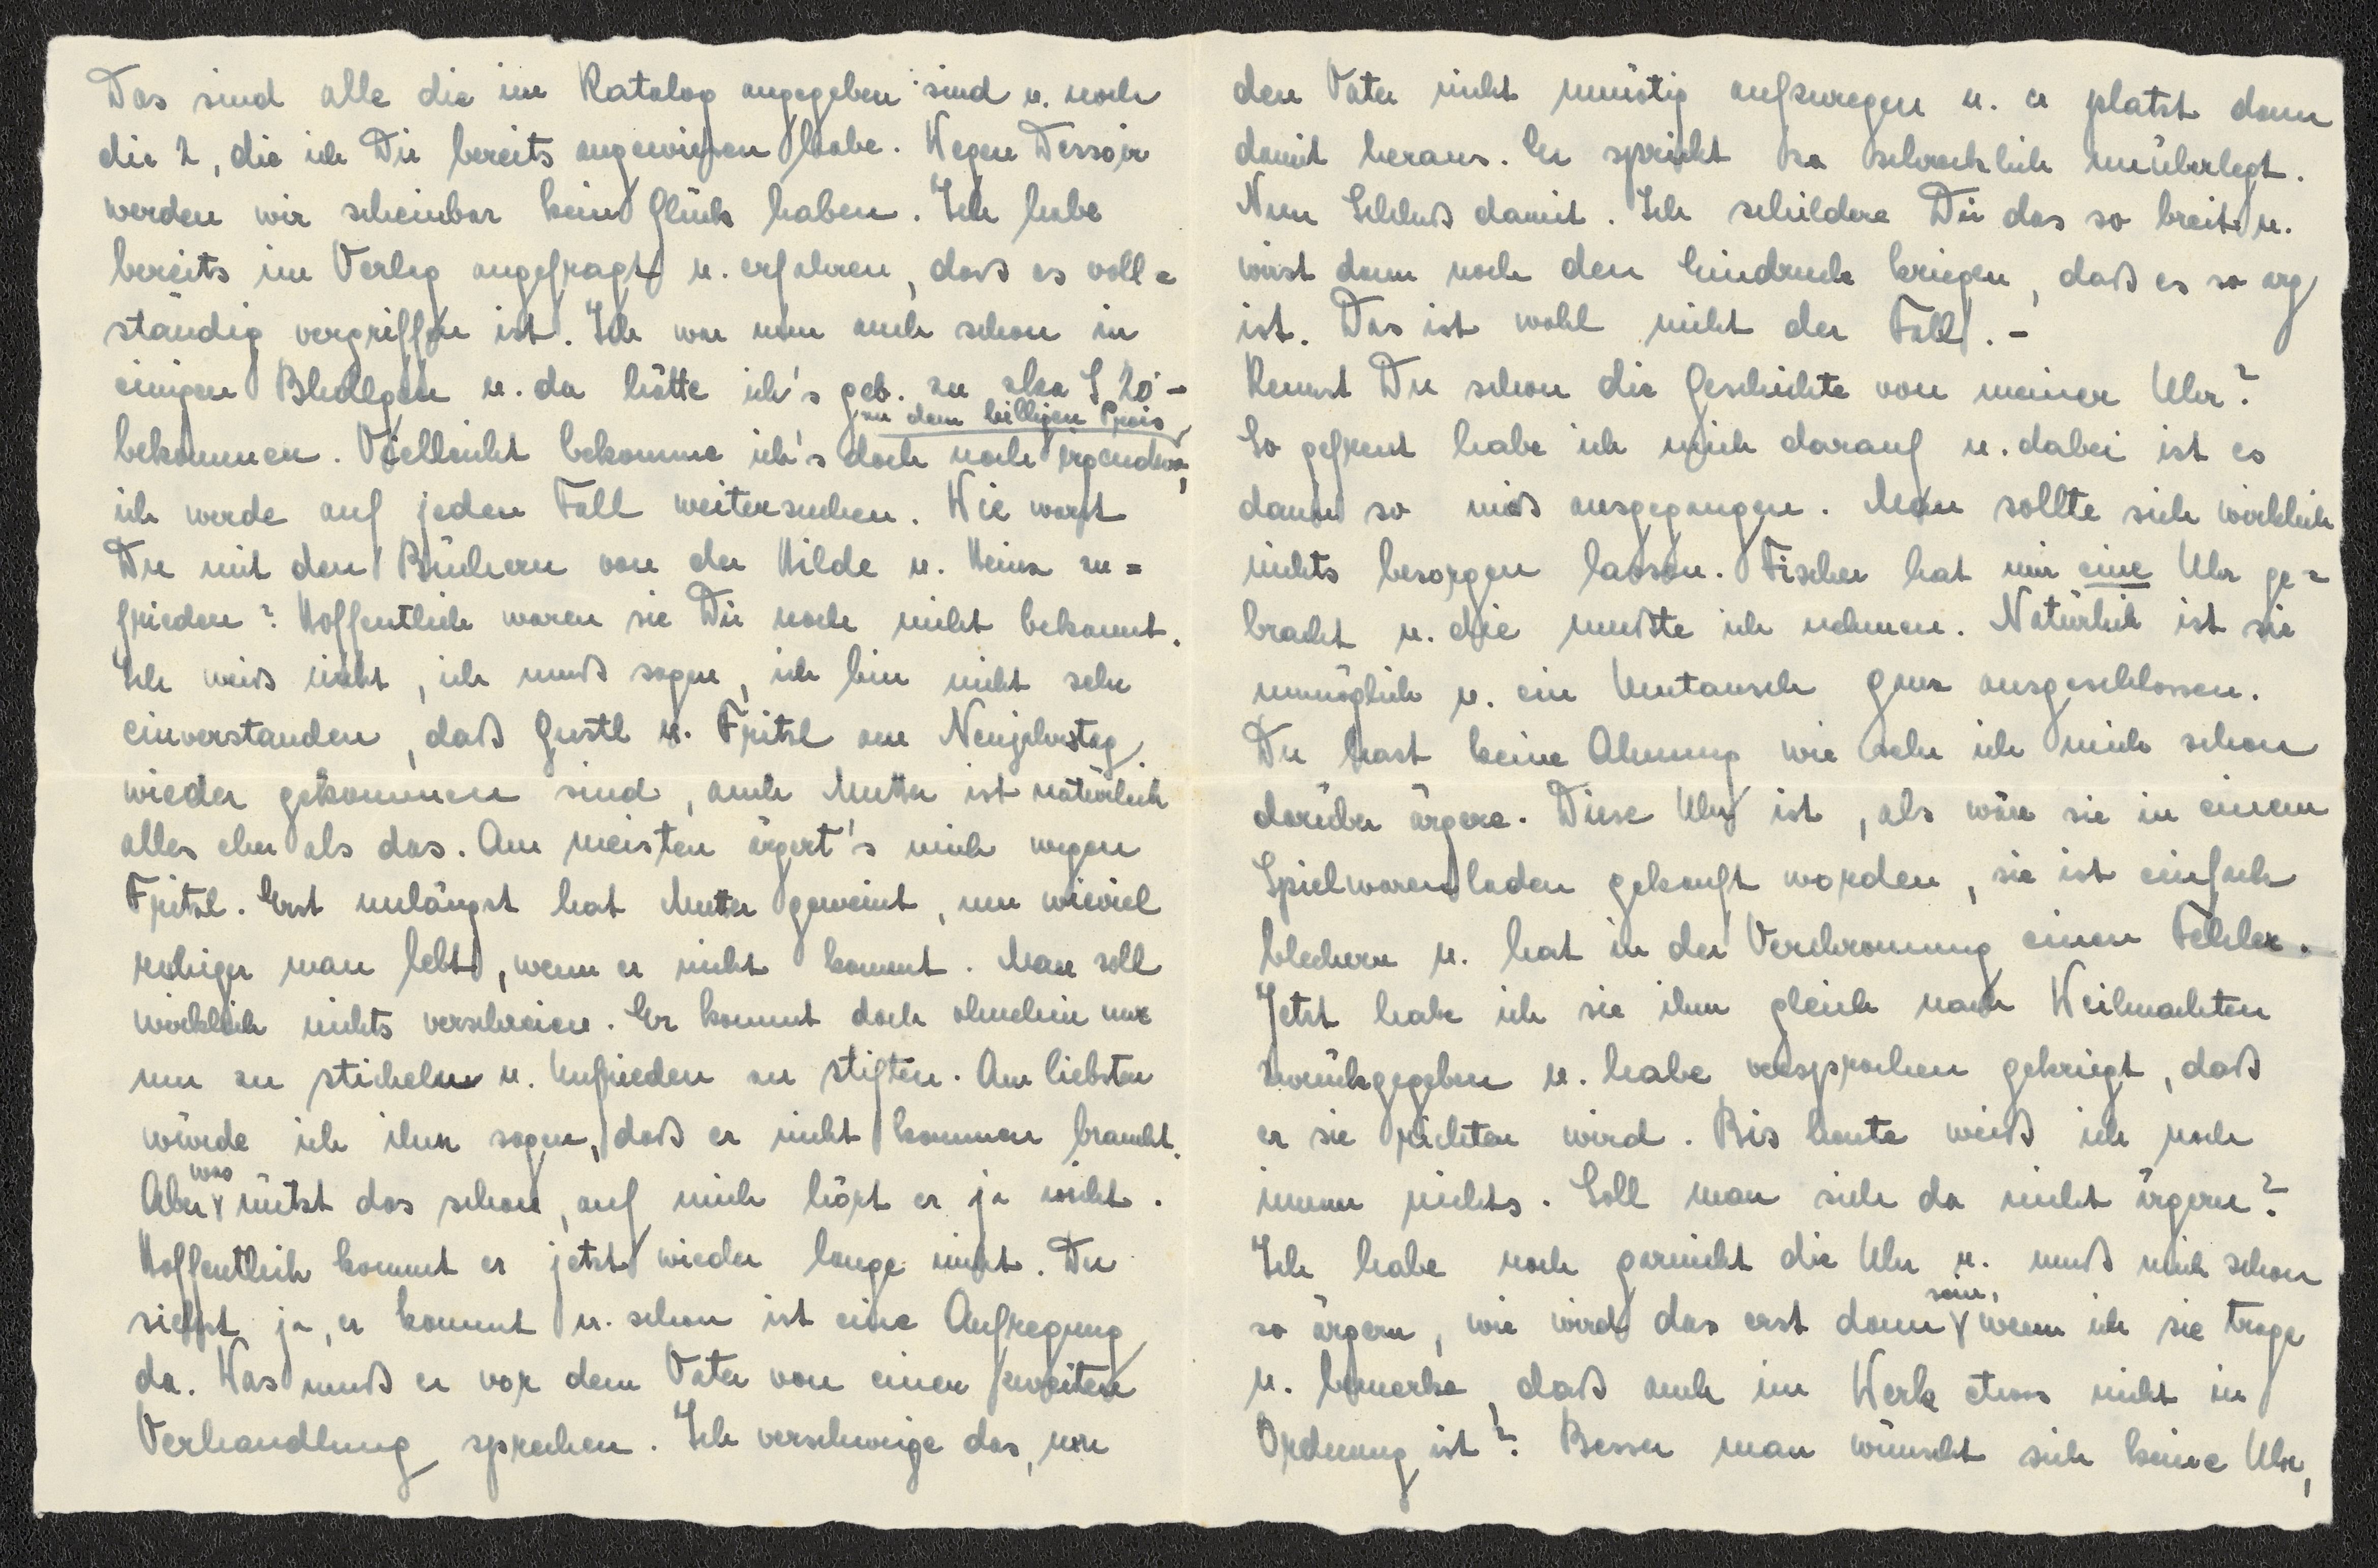 Das sind alle die im Katalog angegeben sind u. noch
die 2, die ich Dir bereits angewiesen habe. Wegen Dessoir
werden wir scheinbar kein Glück haben. Ich habe
bereits im Verlag angefragt u. erfahren, daß es voll=
ständig vergriffen ist. Ich war nun auch schon in
einigen Bhdlgen u. da hätte ich's geb. zu zka S 20 -
zu dem billigen Preis
bekommen. Vielleicht bekomme ich's doch noch irgendwo,
ich werde auf jeden Fall weitersuchen. Wie warst
Du mit den Büchern von der Hilde u. Heinz zu=
frieden? Hoffentlich waren sie Dir noch nicht bekannt.
Ich weiß nicht, ich muß sagen, ich bin nicht sehr
einverstanden, daß Gustl u. Fritzl am Neujahrstag
wieder gekommen sind, auch Mutter ist natürlich
alles eher als das. Am meisten ärgert's mich wegen
Fritzl. Erst unlängst hat Mutter gemeint, um wieviel
ruhiger man lebt, wenn er nicht kommt. Man soll
wirklich nichts verschreien. Er kommt doch ohnehin nur
um zu sticheln u. Unfrieden zu stiften. Am liebsten
würde ich ihm sagen, daß er nicht kommen braucht.
was
Aber nützt das schon, auf mich hört er ja nicht.
Hoffentlich kommt er jetzt wieder lange nicht. Du
siehst ja, er kommt u. schon ist eine Aufregung
da. Was muß er vor dem Vater von einer zweiten
Verhandlung sprechen. Ich verschweige das, um
den Vater nicht unnötig aufzuregen u. er platzt dann
damit heraus. Er spricht so schrecklich unüberlegt.
Nun Schluß damit. Ich schildere Dir das so breit u.
wirst dann noch den Eindruck kriegen, daß es so arg
ist. Das ist wohl nicht der Fall. -
Kennst Du schon die Geschichte von meiner Uhr?
So gefreut habe ich mich darauf u. dabei ist es
dann so mies ausgegangen. Man sollte sich wirklich
nichts besorgen lassen. Fischer hat mir eine Uhr ge=
bracht u. die mußte ich nehmen. Natürlich ist sie
unmöglich u. ein Umtausch ganz ausgeschlossen.
Du hast keine Ahnung wie sehr ich mich schon
darüber ärgere. Diese Uhr ist, als wäre sie in einem
Spielwarenladen gekauft worden, sie ist einfach
blechern u. hat in der Verchromung einen Fehler.
Jetzt habe ich sie ihm gleich nach Weihnachten
zurückgegeben u. habe versprochen gekriegt, daß
er sie richten wird. Bis heute weiß ich noch
immer nichts. Soll man sich da nicht ärgern?
Ich habe noch garnicht die Uhr u. muß mich schon
sein,
so ärgern, wie wird das erst dann wenn ich sie trage
u. bemerke, daß auch im Werk etwas nicht in
Ordnung ist? Besser man wünscht sich keine Uhr,